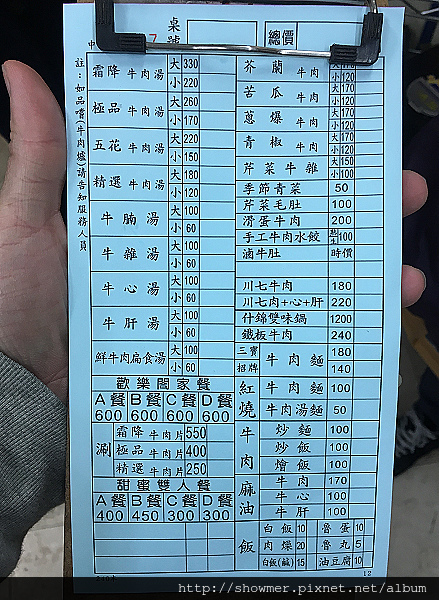 桌號
總價
7
註：如品嚐(牛肉爐)請告知服務人員
霜降 牛肉湯 大 330
小 220
極品 牛肉湯 大 260
小 170
五花 牛肉湯 大 220
小 150
精選 牛肉湯 大 180
小 120
牛腩湯 大 100
小 60
牛雜湯 大 100
小 60
牛心湯 大 100
小 60
牛肝湯 大 100
小 60
鮮牛肉扁食湯 大 100
小 60
歡樂閤家餐
A餐 B餐 C餐 D餐
600 600 600 600
涮 霜降 牛肉片 550
極品 牛肉片 400
精選 牛肉片 250
甜蜜雙人餐
A餐 B餐 C餐 D餐
400 450 300 300
芥蘭 牛肉
小 120
苦瓜 牛肉 大 170
小 120
蔥爆 牛肉 大 170
小 120
青椒 牛肉 大 170
小 120
芹菜牛雜 大 150
小 100
季節青菜 50
芹菜毛肚 100
滑蛋牛肉 200
手工牛肉水餃 100
滷牛肚 時價
川七牛肉 180
川七肉+心+肝 220
什錦雙味鍋 1200
鐵板牛肉 240
三寶 牛肉麵 180
招牌 140
紅燒 牛肉麵 100
牛肉湯麵 50
牛肉 炒麵 100
炒飯 100
燴飯 100
麻油 牛肉 170
牛心 100
牛肝 100
飯 白飯 10 魯蛋 10
肉燥 20 魯丸 5
白飯(鹹) 15 油豆腐 10
http://showmer.pixnet.net/album